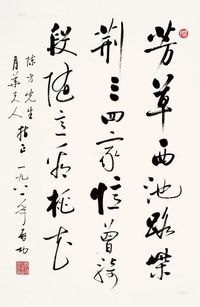 芳草西池路柴
荆三四家忆曾骑
段随意看桃花
陈方先生
月华夫人 指正 一九八二年 启功